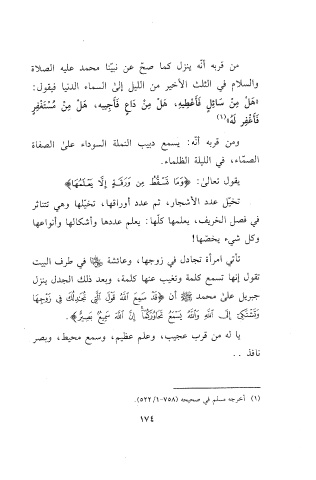 من قربه أنّه ينزل كما صحّ عن نبيّنا محمد عليه الصلاة
والسلام في الثلث الأخير من الليل إلىٰ السماء الدنيا فيقول:
«هَلْ مِنْ سَائِلٍ فَأُعْطِيهِ، هَلْ مِنْ دَاعٍ فَأُجِيبه، هَلْ مِنْ مُسْتَغْفِرٍ
فَأَغْفِر لَهُ»(١)
ومن قربه أنّه: يسمع دبيب النملة السوداء علىٰ الصفاة
الصمّاء، في الليلة الظلماء.
يقول تعالىٰ: ﴿وَمَا تَسْقُطُ مِن وَرَقَةٍ إِلَّا يَعْلَمُهَا﴾
تخيّل عدد الأشجار، ثم عدد أوراقها، تخيّلها وهي تتناثر
في فصل الخريف، يعلمها كلّها: يعلم عددها وأشكالها وأنواعها
وكل شيء يخصّها!
تأتي امرأة تجادل في زوجها، وعائشة ﵂ في طرف البيت
تقول إنها تسمع كلمة وتغيب عنها كلمة، وبعد ذلك الجدل ينزل
جبريل علىٰ محمد ﷺ أن ﴿قَدْ سَمِعَ اللَّهُ قَوْلَ الَّتِي تُجَادِلُكَ فِي زَوْجِهَا
وَتَشْتَكِي إِلَى اللَّهِ وَاللَّهُ يَسْمَعُ تَحَاوُرَكُمَا إِنَّ اللَّهَ سَمِيعٌ بَصِيرٌ﴾.
يا له من قرب عجيب، وعلم عظيم، وسمع محيط، وبصر
نافذ ..
(١) أخرجه مسلم في صحيحه (٧٥٨-٥٢٢/١)
١٧٤